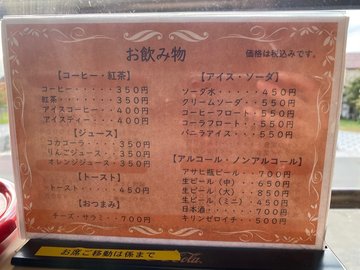 お飲み物
価格は税込みです。
【コーヒー・紅茶】
コーヒー・・・・・350円
紅茶・・・・・・・350円
アイスコーヒー・・・400円
アイスティー・・・・400円
【ジュース】
コカコーラ・・・・・350円
りんごジュース・・・350円
オレンジジュース・・・350円
【トースト】
トースト・・・・・450円
【おつまみ】
チーズ・サラミ・・・700円
【アイス・ソーダ】
ソーダ水・・・・・450円
クリームソーダ・・・550円
コーヒーフロート・・・550円
コーラフロート・・・・550円
バニラアイス・・・・550円
【アルコール・ノンアルコール】
アサヒ瓶ビール・・・700円
生ビール（中）・・・650円
生ビール（大）・・・850円
生ビール（ミニ）・・・450円
日本酒・・・・・・700円
キリンゼロイチ・・・500円
お席ご移動は係まで